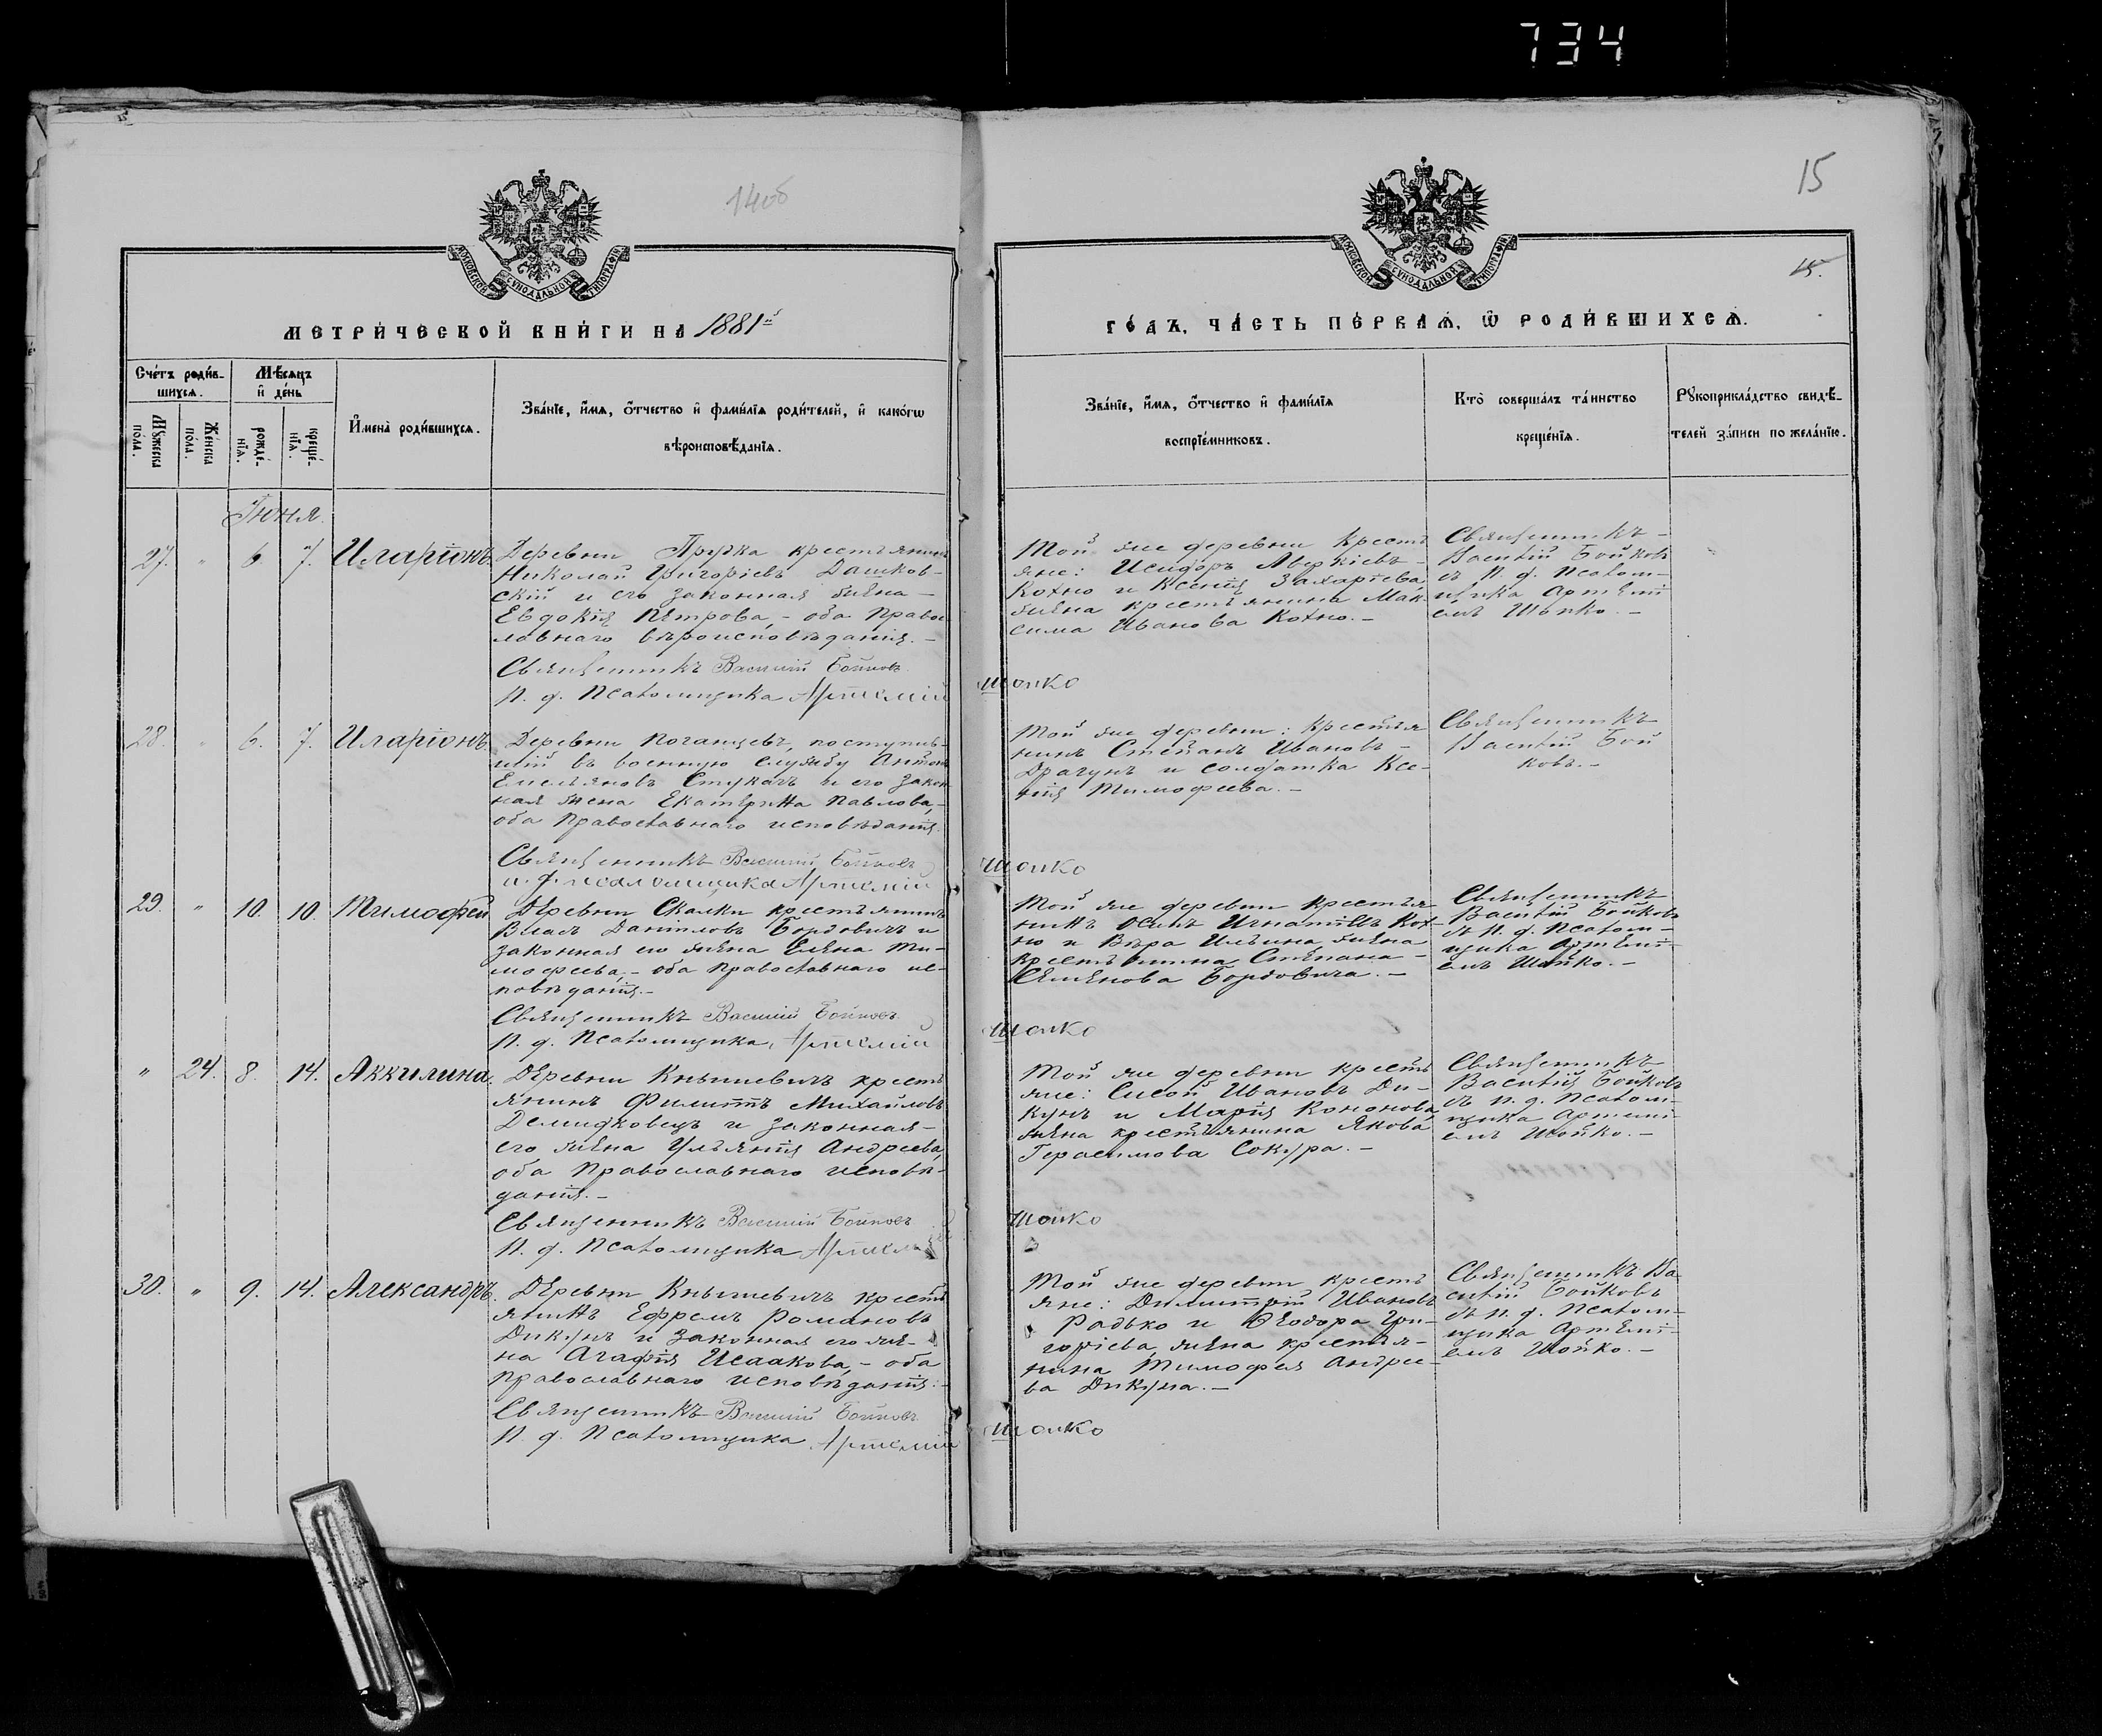 734
14об
15
15.
МОСКОВСКОЙ СѴНОДАЛЬНОЙ ТИПОГРАФІИ
МОСКОВСКОЙ СѴНОДАЛЬНОЙ ТИПОГРАФІИ
МЕТРИ́ЧЕСКОЙ КНИ́ГИ НА 1881й
ГО́ДЪ, ЧА́СТЬ ПЕ́РВАѦ, Ѡ РОДИ́ВШИХСѦ.
Сче́тъ роди́в-
шихсѧ.
Мѣ́сѧцъ
и҆ де́нь
Мꙋ́жеска по́ла.
Же́нска по́ла.
рожде́-
нїѧ.
креще́-
нїѧ.
И҆мена̀ роди́вшихсѧ.
Зва́нїе, и҆́мѧ, ѻ҆́тчество и҆ фами́лїѧ роди́телей, и҆ како́гѡ
вѣроисповѣ́данїѧ.
Зва́нїе, и҆́мѧ, ѻ҆́тчество и҆ фами́лїѧ
воспрїе́мниковъ.
Кто̀ соверша́лъ та́инство
креще́нїѧ.
Рꙋкоприкла́дство свидѣ́-
телей за́писи по жела́нїю.
Іюня.
27. " 6. 7. Иларіонъ.
Деревни Прудка крестьянинъ
Николай Григоріевъ Дашков-
скій и его законная жена -
Евдокія Петрова, - оба право-
славнаго вѣроисповѣданія. -
Священникъ Василій Бойковъ
И. д. Псаломщика Артемій
Той же деревни крестья
яне: Исидоръ Аверкіевъ -
Кохно и Ксенія Захаріева,
жена крестьянина Мак-
сима Иванова Кохно. -
Шопко
Священникъ -
Василій Бойковъ
съ И. д. Псалом-
щика Артемі-
емъ Шопко. -
28. " 6. 7. Иларіонъ.
Деревни Поганцевъ, поступив-
шій въ военную службу Антонъ
Емельяновъ Стукачъ и его закон-
ная жена Екатерина Павлова, -
оба православнаго исповѣданія.
Священникъ Василій Бойковъ
и. д. псаломщика Артемій
Той же деревни: крестья-
нинъ Степанъ Ивановъ -
Драгунъ и солдатка Ксе-
нія Тимофеева. -
Шопко
Священникъ
Василій Бой
ковъ. -
29. " 10. 10. Тимофей
Деревни Скалки крестьянинъ
Власъ Даниловъ Бордовичъ и
законная его жена Елена Ти-
мофеева, - оба православнаго ис-
повѣданія. -
Священникъ Василій Бойковъ
И. д. Псаломщика, Артемій
Той же деревни крестья
нинъ Осипъ Игнатіевъ Кох-
но и Вѣра Ильина, жена
крестьянина Степана -
Семенова Бордовича. -
Шопко
Священникъ
Василій Бойковъ
съ И. д. Псалом-
щика Артемі-
емъ Шопко. -
" 24. 8. 14. Аккилина.
Деревни Кнышевичъ кресть
янинъ Филиппъ Михайловъ
Демидковецъ и законная -
его жена Ульянія Андреева,
оба православнаго исповѣ-
данія. -
Священникъ Василій Бойковъ
И. д. Псаломщика Артемій
Той же деревни кресть
яне: Сисой Ивановъ Ди-
кунъ и Марія Кононова,
жена крестьянина Якова
Герасимова Сокура. -
Шопко
Священникъ
Василій Бойковъ
съ И. д. Псалом-
щика Артемі-
емъ Шопко. -
30. " 9. 14. Александръ.
Деревни Кнышевичъ кресть
янинъ Ефремъ Романовъ
Дикунъ и законная его же-
на Агафія Исаакова, - оба
православнаго исповѣданія. -
Священникъ Василій Бойковъ
И. д. Псаломщика, Артемій
Той же деревни кресть
яне: Димитрій Ивановъ
Радько и Ѳеодора Гри-
горіева, жена крестья-
нина Тимофея Андрее-
ва Дикуна. -
Шопко
Священникъ Ва-
силій Бойковъ
съ И. д. Псалом-
щика Артемі-
емъ Шопко. -